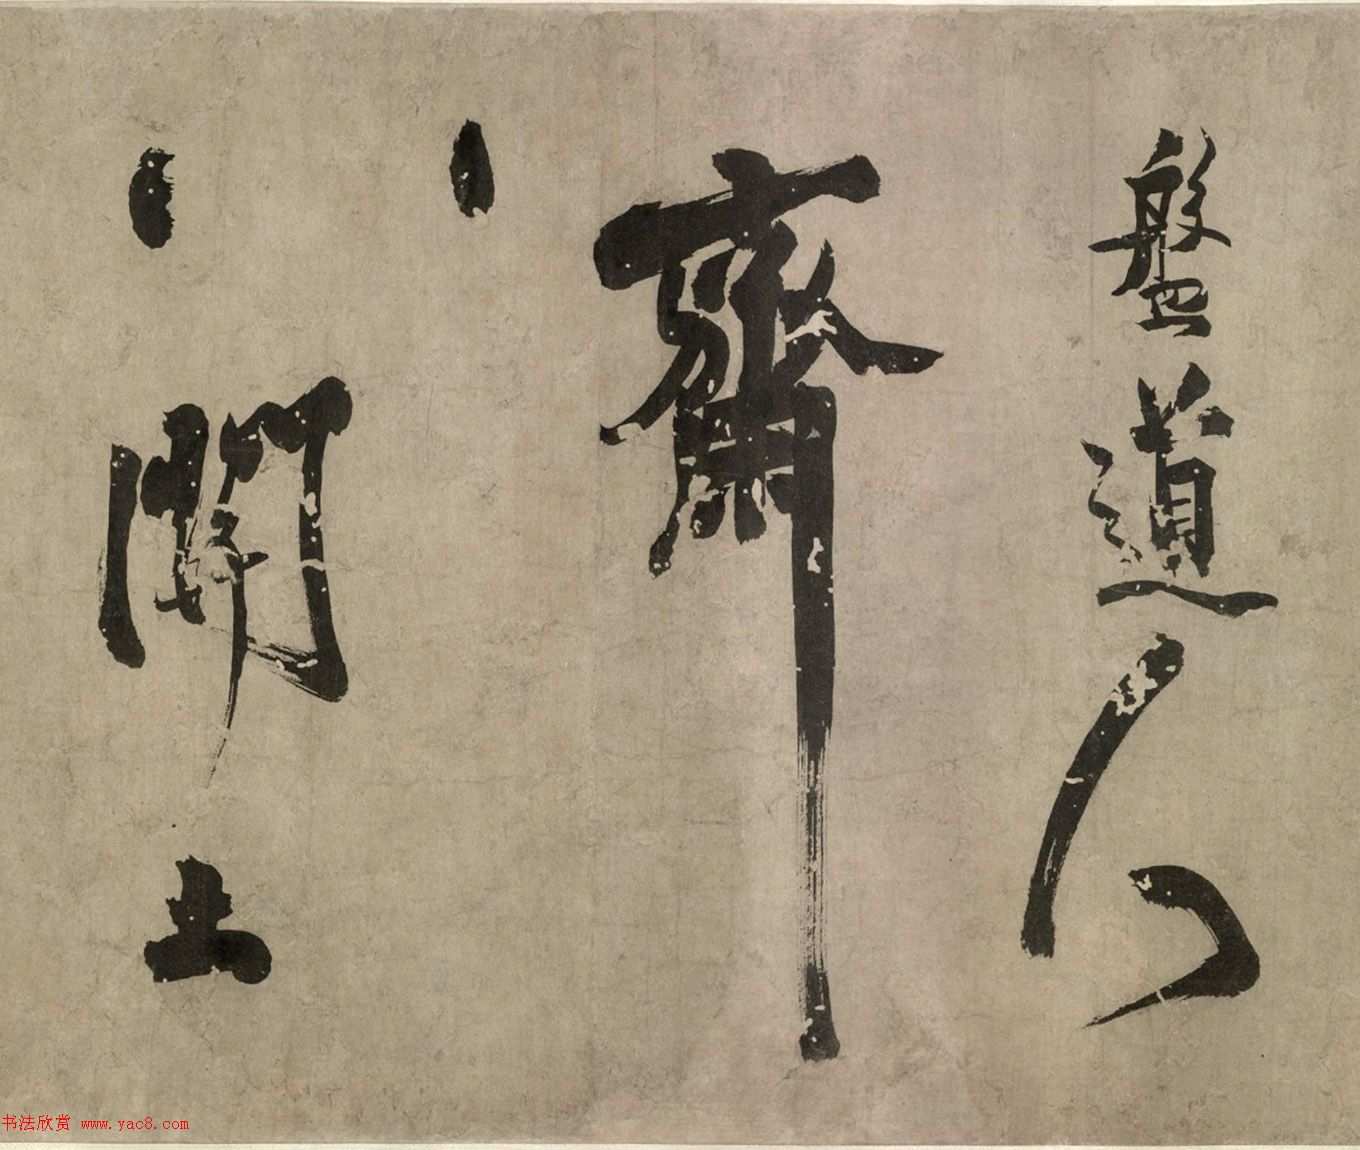 盤道人
齋
八開士
书法欣赏 www.yac8.com